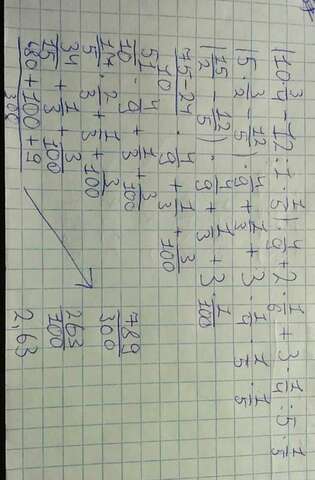 (10 3/4 - 12 : 1 · 1/5) · 4/9 + 2 · 1/6 + 3 · 1/4 : 5 · 1/5
(5 · 3/2 - 12/5) · 4/9 + 1/3 + 3 · 1/4 · 1/5 · 1/5
(15/2 - 12/5) · 4/9 + 1/3 + 3 · 1/100
75-24/10 · 4/9 + 1/3 + 3/100
51/10 · 4/9 + 1/3 + 3/100
17/5 · 2/3 + 1/3 + 3/100
34/15 + 1/3 + 3/100
680+100+9/300
789/300
263/100
2,63